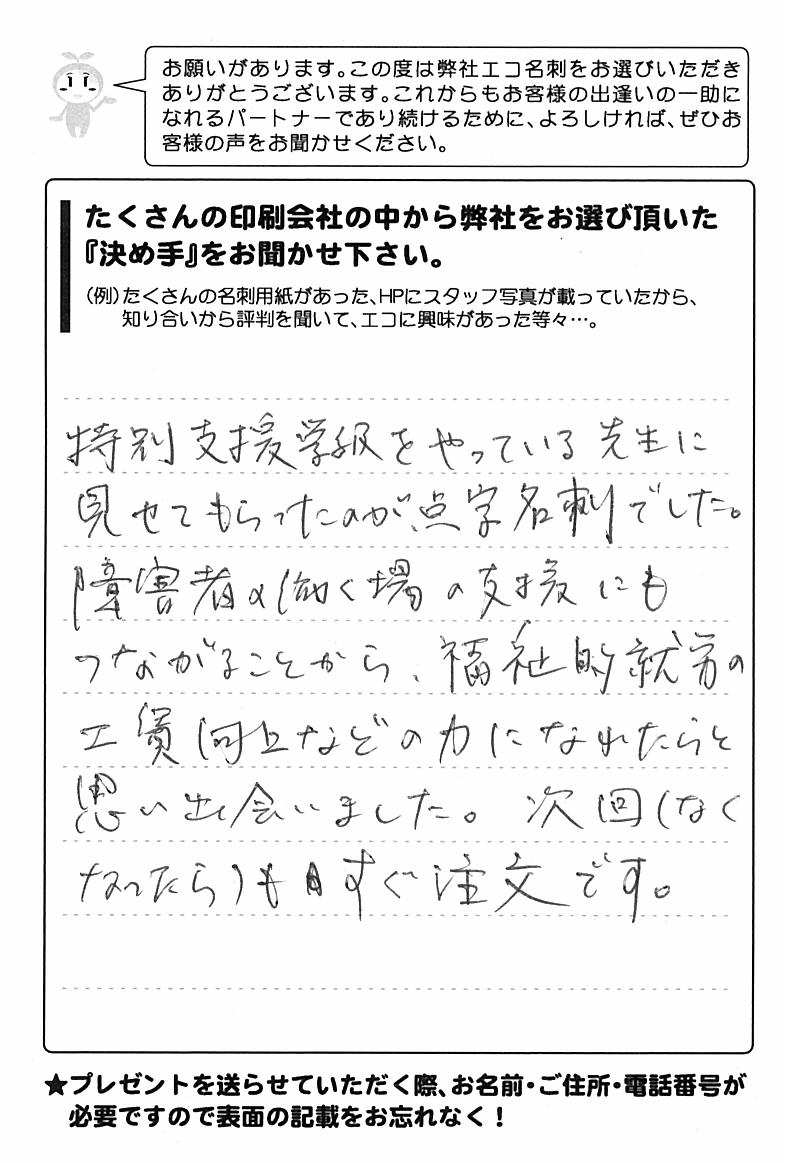 お願いがあります。この度は弊社エコ名刺をお選びいただき
ありがとうございます。これからもお客様の出逢いの一助に
なれるパートナーであり続けるために、よろしければ、ぜひお
客様の声をお聞かせください。
たくさんの印刷会社の中から弊社をお選び頂いた
『決め手』をお聞かせ下さい。
(例)たくさんの名刺用紙があった、HPにスタッフ写真が載っていたから、
知り合いから評判を聞いて、エコに興味があった等々…。
特別支援学級をやっている先生に
見せてもらったのが、点字名刺でした。
障害者の働く場の支援にも
つながることから、福祉的就労の
工賃向上などの力になれたらと
思い出会いました。次回(なく
なったら)もすぐ注文です。
★プレゼントを送らせていただく際、お名前・ご住所・電話番号が
必要ですので表面の記載をお忘れなく!